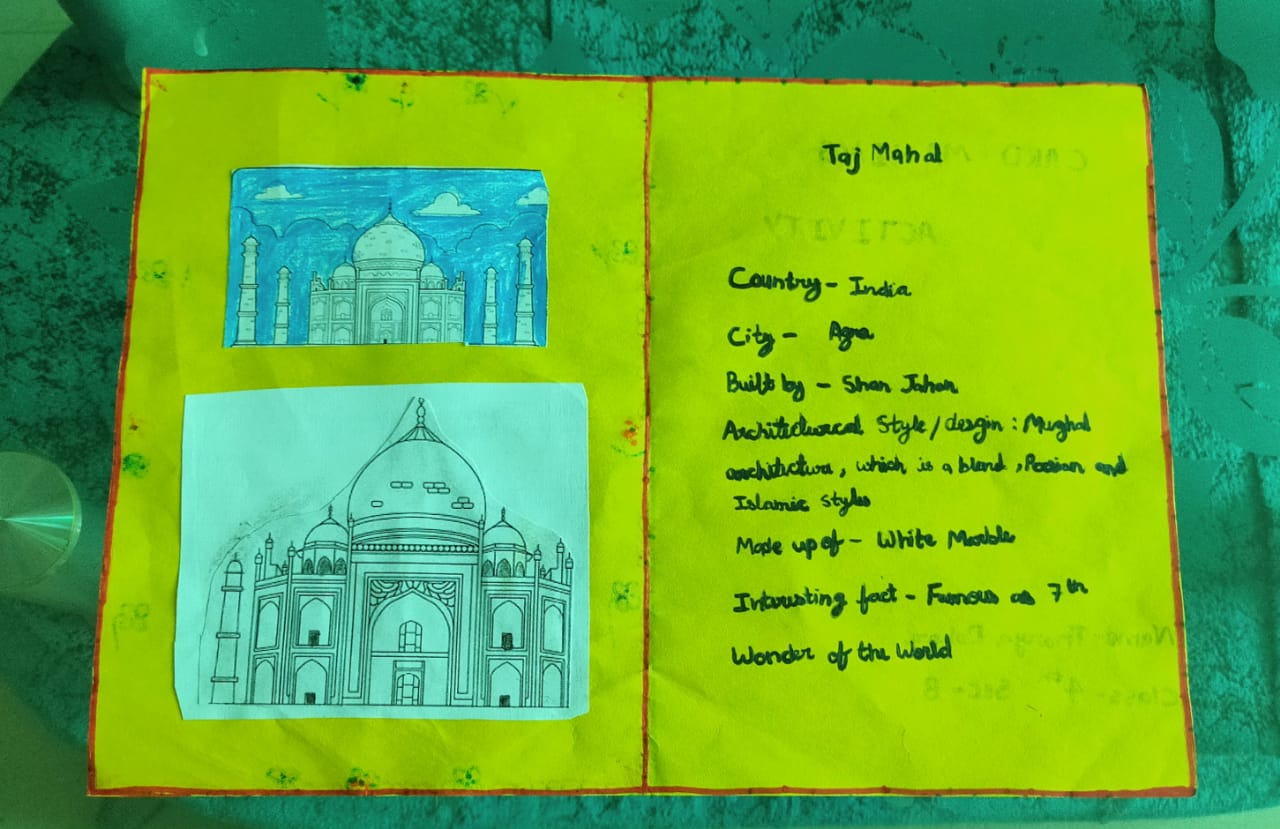 Taj Mahal
CARD M
ACTIVITY
Country - India
City - Agra
Built by - Shan Jahan
Architectureal Style/desgin : Mughal
architectur, which is a blend , Persian and
Islamic styles
Made up of - White Marble
Interesting fact - Famous as 7th
Wonder of the World
Name-
Class - 4th Sec - B